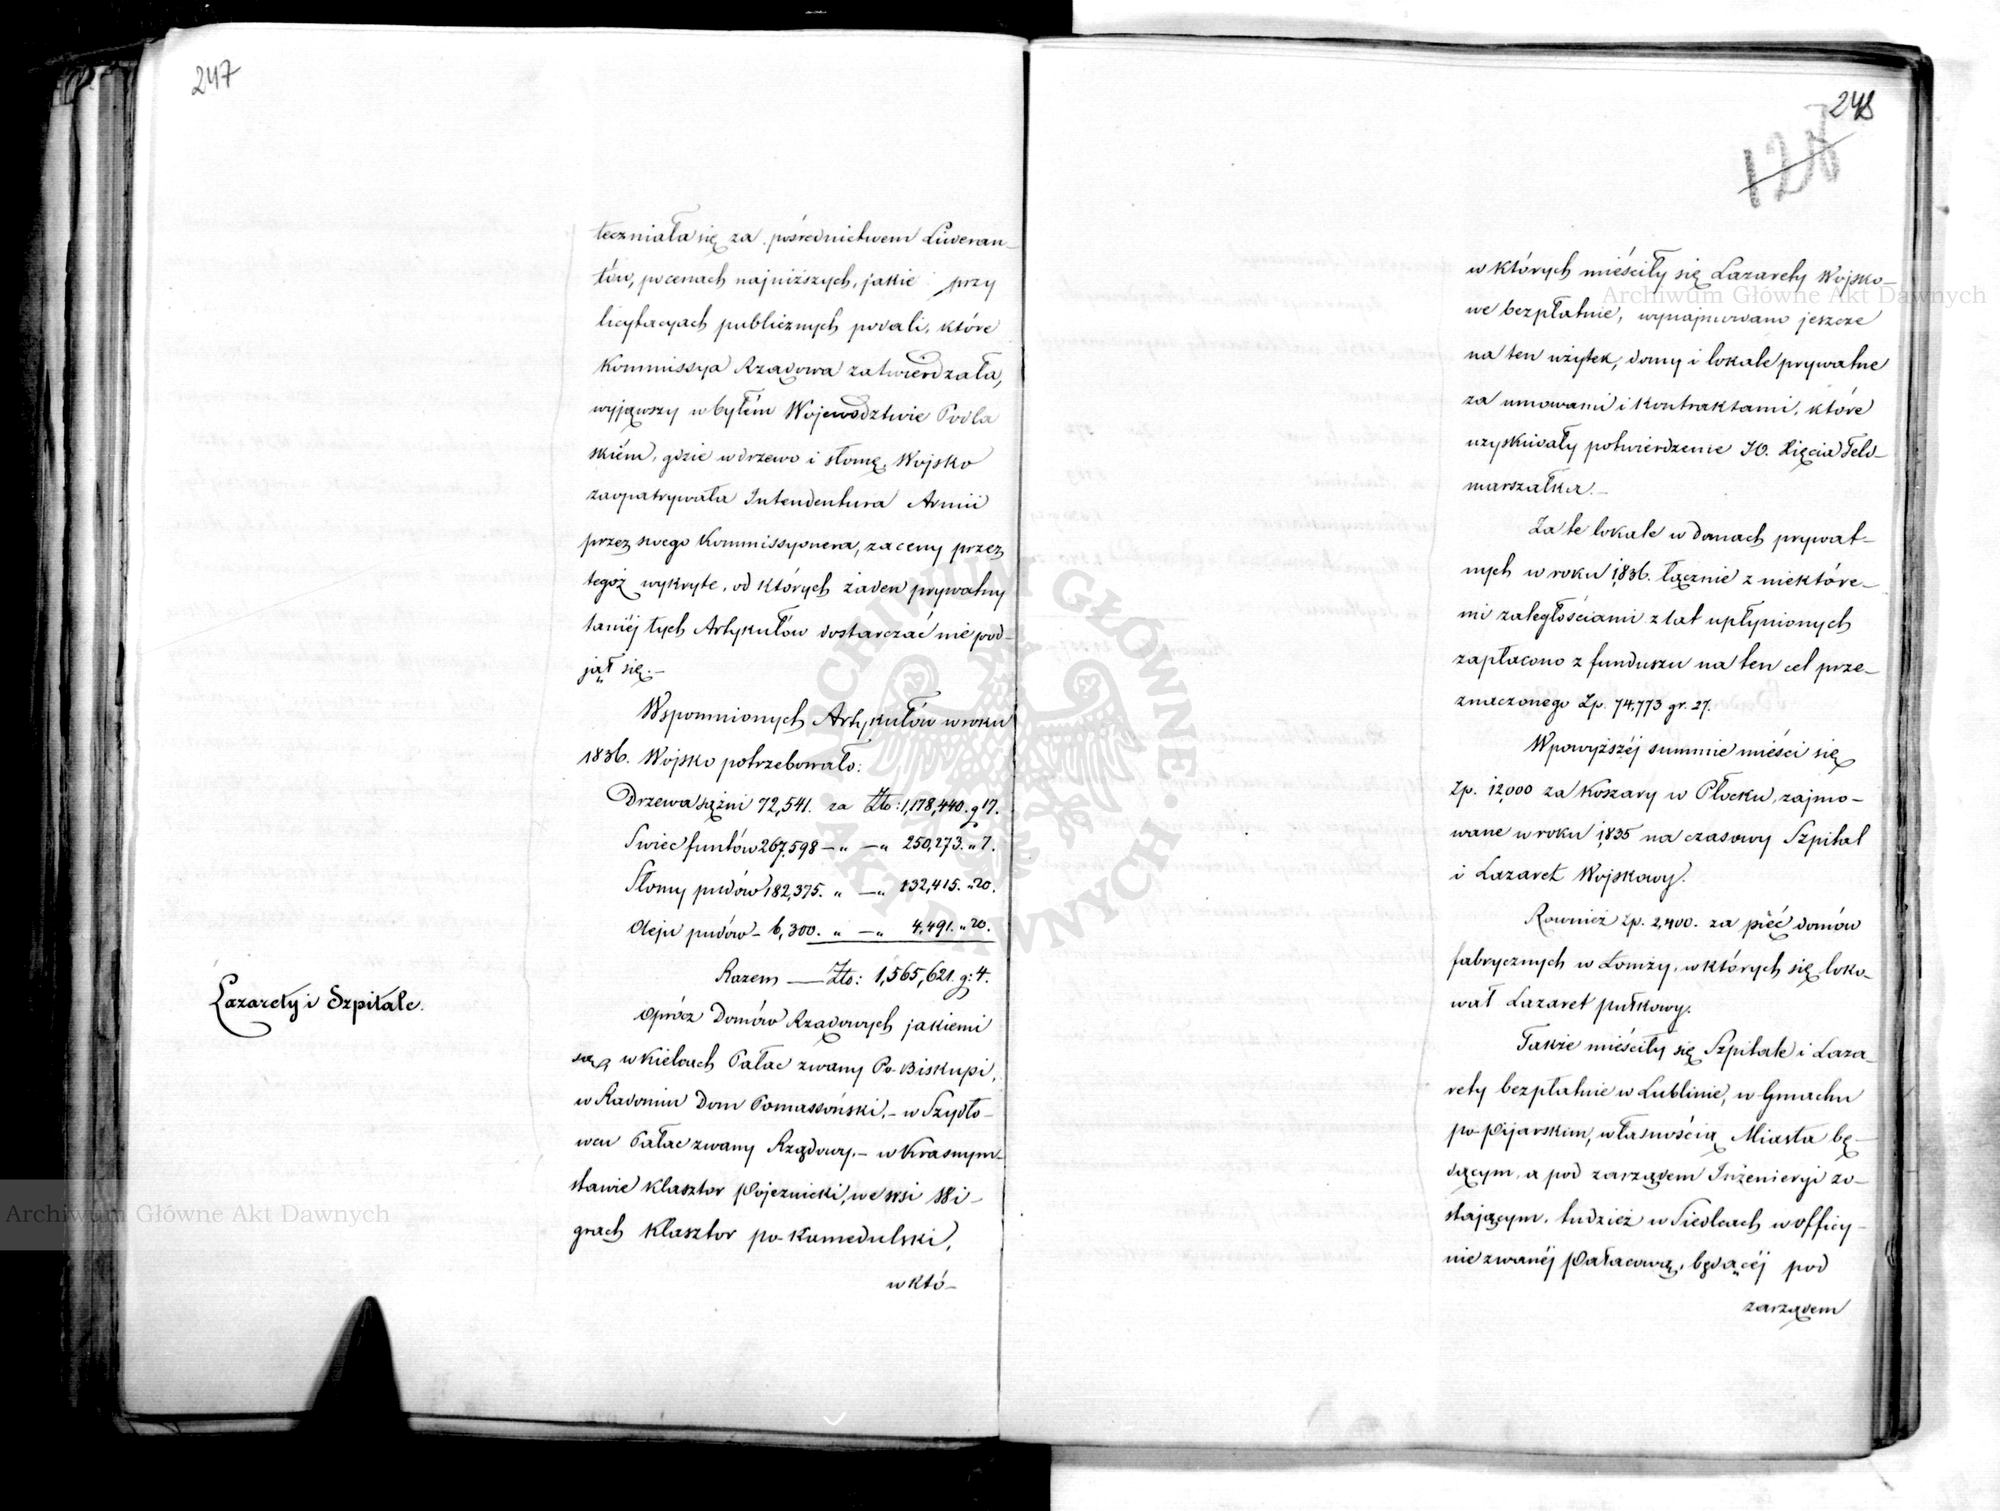 247
teczniała się za pośrednictwem Liweran-
tów, po cenach najniższych, jakie przy
licytacyach publicznych podali, które
Kommissya Rządowa zatwierdzała,
wyjąwszy w byłém Województwie Podla
skiém, gdzie w drzewo i słomę, Wojsko
zaopatrywała Intendentura Armii
przez swego Kommissyonera, za ceny przez
tegoż wykryte, od których żaden prywatny
taniéj tych Artykułów dostarczać nie pod-
jął się.-
Wspomnionych Artykułów w roku
1836. Wojsko potrzebowało:
Drzewa sążni 72,541. za Złp: 1,178,440. g 17.
Swiec funtów 267,598 - " - " 250,273. " 7.
Słomy pudów 182,375. " - " 132,415. " 20.
Oleju pudów - 6,300. " - " 4,491. " 20.
Razem - Złp: 1,565,621. g: 4.
Lazarety i Szpitale.
Oprócz Domów Rządowych jakiemi
są, w Kielcach Pałac zwany Po-Biskupi,
w Radomiu Dom Pomassoński, - w Szydło-
wcu Pałac zwany Rządowy, - w Krasnym-
stawie Klasztor Pojezuicki, we wsi Wi-
grach Klasztor po-Kamedulski,
w któ-
248
127
w których mieściły się Lazarety Wojsko-
we bezpłatnie, wynajmowano jeszcze
na ten użytek, domy i lokale prywatne
za umowami i kontraktami, które
uzyskiwały potwierdzenie JO. Xięcia Feld-
marszałka.-
Za te lokale w domach prywat-
nych w roku 1836. łącznie z niektóre-
mi zaległościami z lat upłynionych
zapłacono z funduszu na ten cel prze-
znaczonego Zp. 74,773 gr. 27.
W powyższéj summie mieści się
Zp. 12,000 za Koszary w Płocku, zajmo-
wane w roku 1835 na czasowy Szpital
i Lazaret Wojskowy.
Rownież Zp. 2,400. za pięć domów
fabrycznych w Łomży, w których się loko-
wał Lazaret pułkowy.
Także mieściły się Szpitale i Laza-
rety bezpłatnie w Lublinie, w Gmachu
po-Pijarskim, własnością Miasta bę-
dącym, a pod zarządem Inżenieryi zo-
stającym, tudzież w Siedlcach w officy-
nie zwanéj Pałacową, będącéj pod
zarządem
Archiwum Główne Akt Dawnych
Archiwum Główne Akt Dawnych
· ARCHIWUM GŁÓWNE · AKT DAWNYCH ·